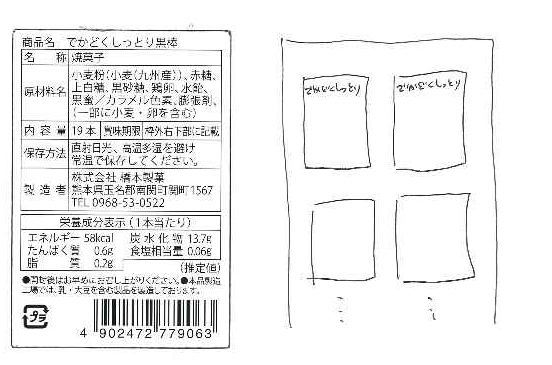 商品名 でかどくしっとり黒棒
名称 焼菓子
原材料名 小麦粉(小麦(九州産))、赤糖、
上白糖、黒砂糖、鶏卵、水飴、
黒蜜/カラメル色素、膨張剤、
(一部に小麦・卵を含む)
内容量 19本 賞味期限 枠外右下部に記載
保存方法 直射日光、高温多湿を避け
常温で保存してください。
製造者 株式会社 橋本製菓
熊本県玉名郡南関町関町1567
TEL 0968-53-0522
栄養成分表示(1本当たり)
エネルギー 58kcal 炭水化物 13.7g
たんぱく質 0.6g 食塩相当量 0.06g
脂質 0.2g
(推定値)
●開封後はお早めにお召し上がりください。●本品製造
工場では、乳・大豆を含む製品を製造しております。
プラ
4 902472 779063